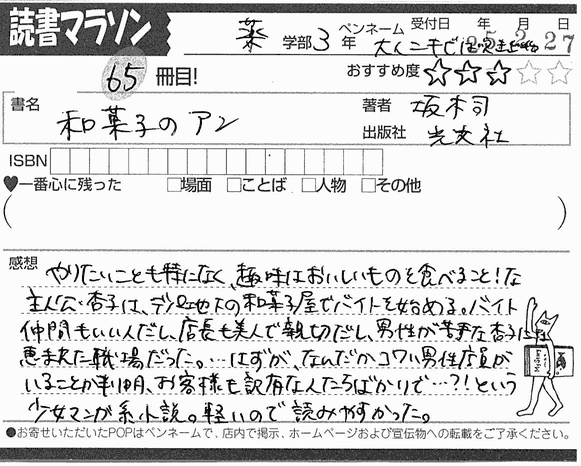 読書マラソン
薬 学部 3 年 ペンネーム 受付日 年 月 日
25 2 27
65 冊目! おすすめ度 ☆☆☆☆☆
書名 和菓子のアン
著者 坂木司
出版社 光文社
ISBN
♥一番心に残った □場面 □ことば □人物 □その他
感想 やりたいことも特になく、趣味はおいしいものを食べること!な
主人公・杏子は、デパ地下の和菓子屋でバイトを始める。バイト
仲間もいい人だし、店長も美人で親切だし、男性が苦手な杏子には
恵まれた職場だった。…はずが、なんだかコワい男性店員が
いることが判明、お客様も訳有なんたらばかりで…?!という
少女マンガ系小説。軽いので読みやすかった。
●お寄せいただいたPOPはペンネームで、店内で掲示、ホームページおよび宣伝物への転載をご了承ください。